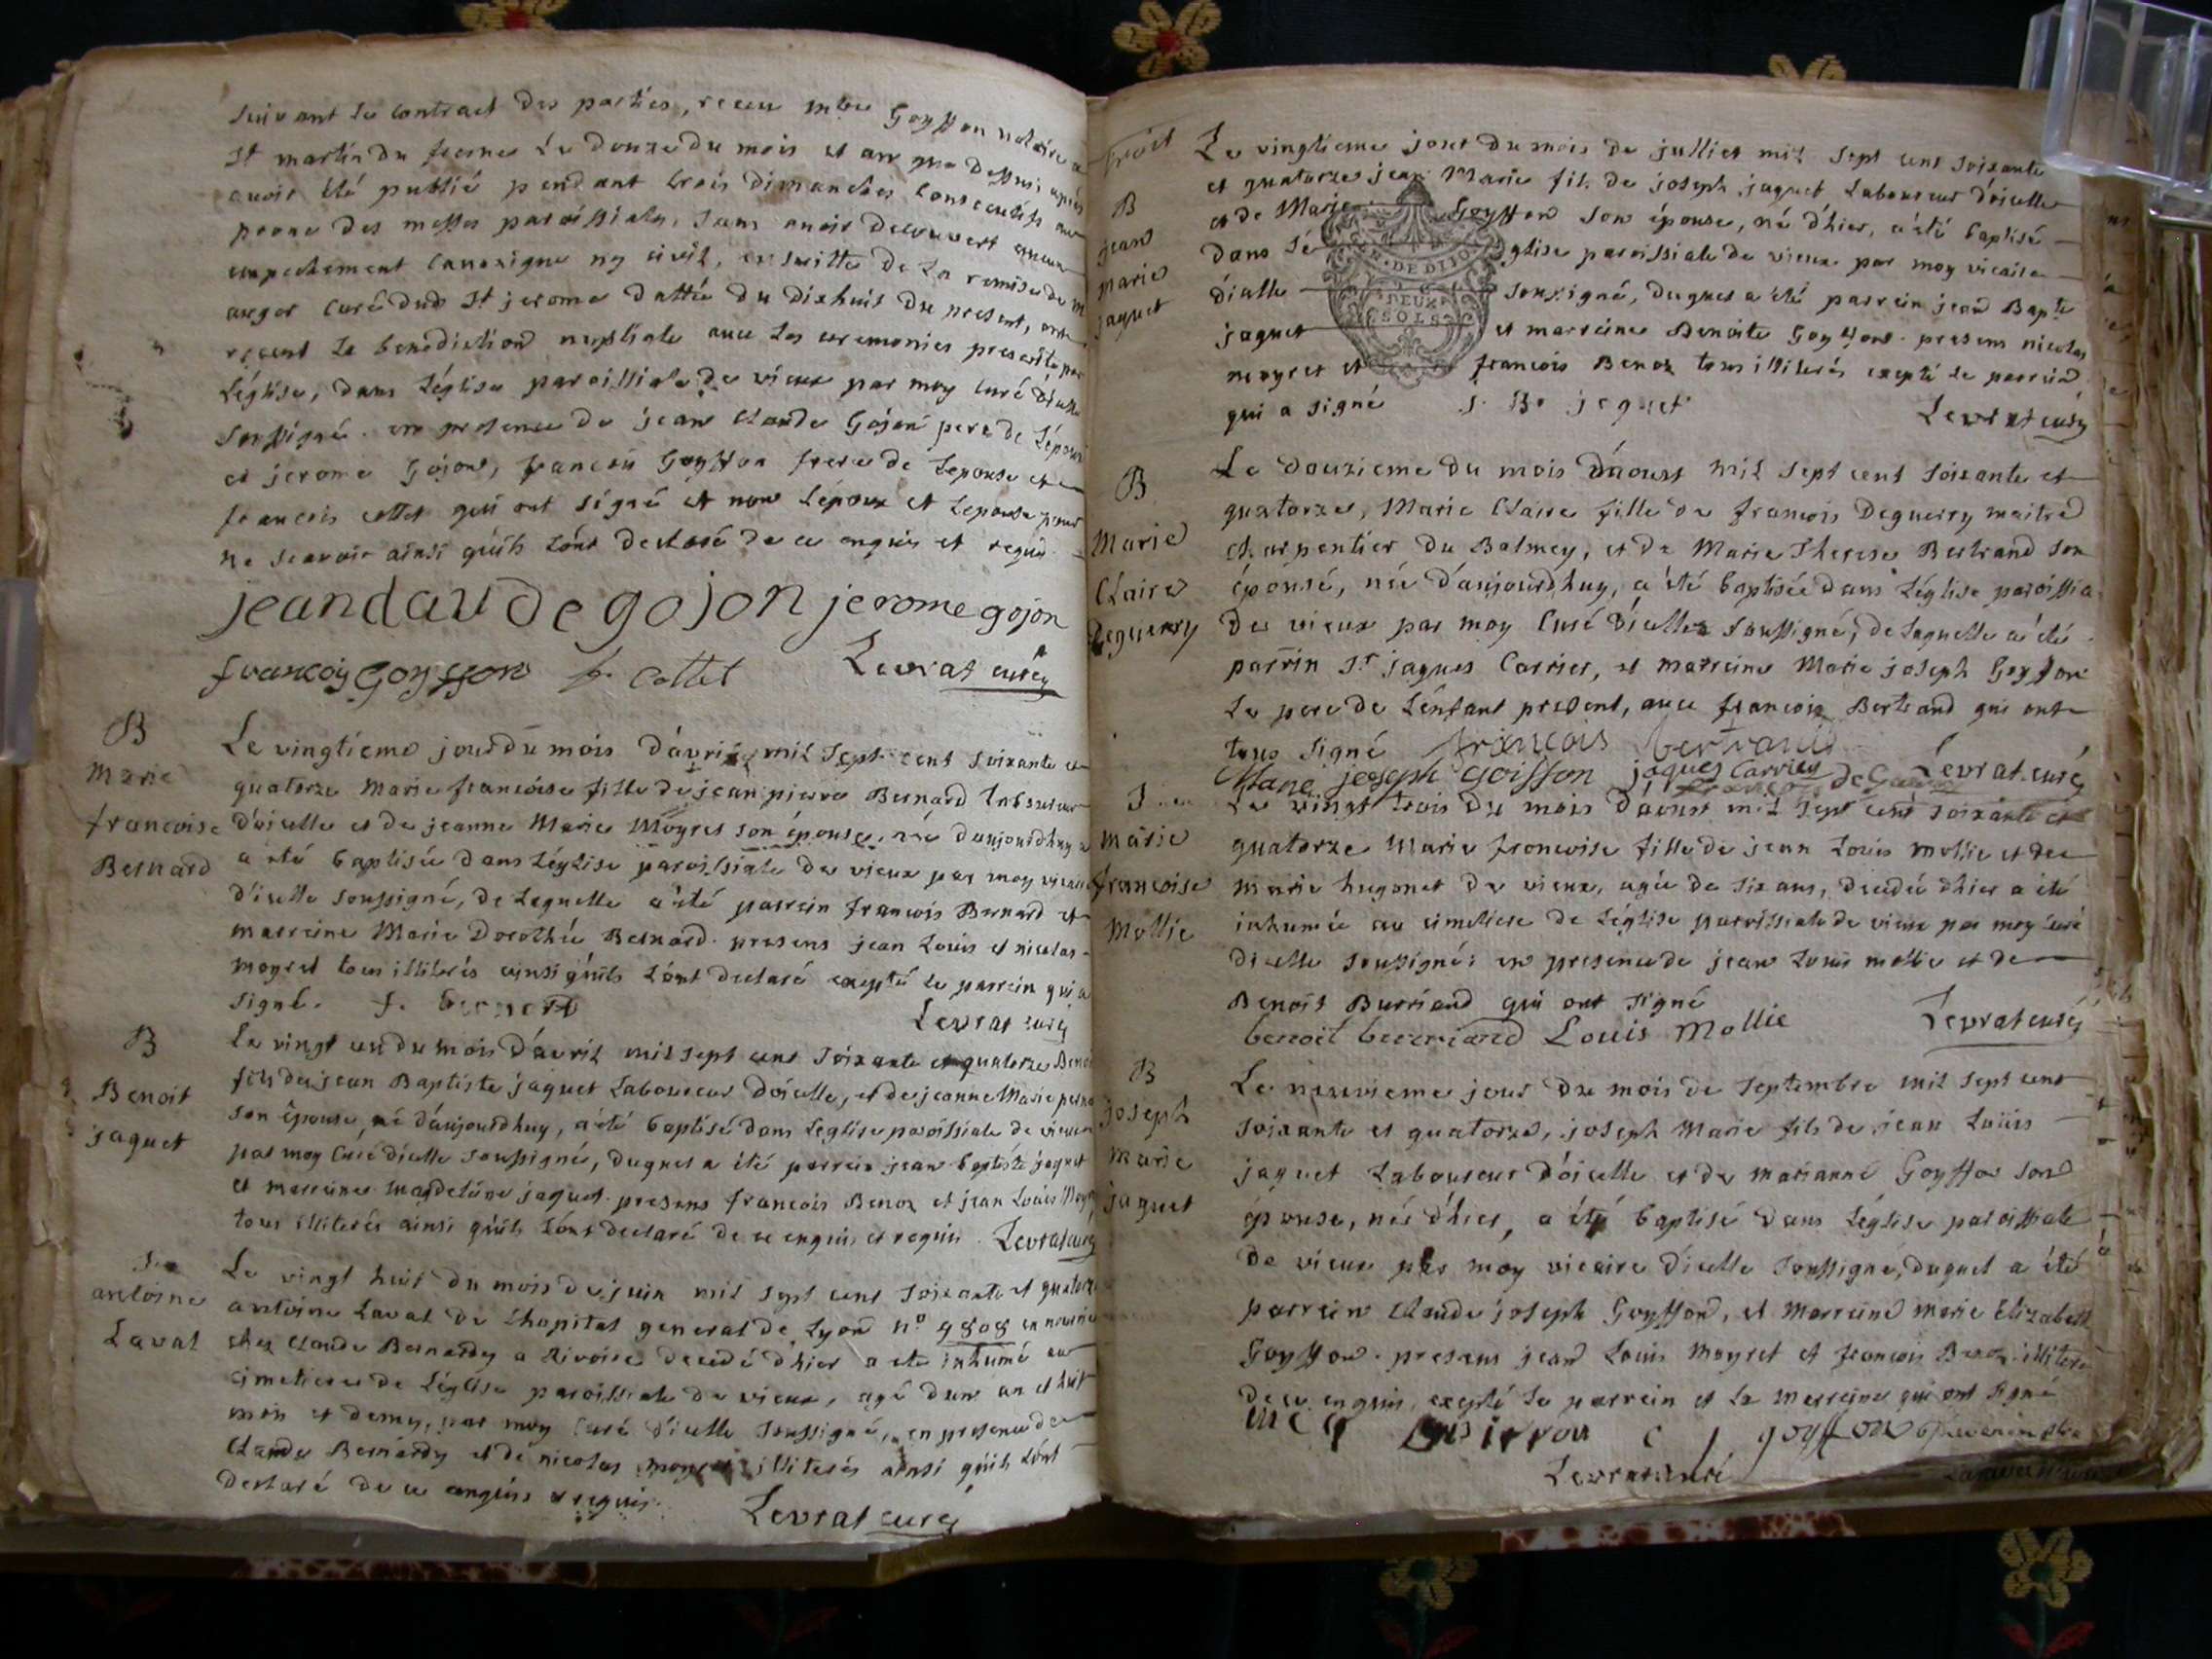 suivant le contract des parties, receu Goyffon notaire a
St martin du fresne le douze du mois et an que dessus apres
avoir été publié pendant trois dimanches consecutifs au
prone des messes paroissiales, sans avoir decouvert aucun
empechement canonique ny civil, ensuitte de la remise de
auger curé dud St jerome dattée du dixhuit du present, ont
receut la benediction nuptiale avec les ceremonies
Léglise, dans Léglise paroissiale de vieux par moy curé
soussigné en presence de jean claude Gojon pere de Lépoux
et jerome Gojon, francois Goyffon frere de Lepouse et
francois collet qui ont signé et non Lépoux et Lepouse pour
ne scavoir ainsi quils Lónt declaré de ce enquis et requis
jean claude gojon jerome gojon
francois goyffon f collet Levrat curé
B
Marie
francoise
Bernard
Le vingtieme jour du mois dávril mil sept cent soixante et
quatorze Marie francoise fille de jean pierre Bernard Laboureur
dóiselle et de jeanne Marie Moyret son épouse, née daujourdhuy
a été baptisée dans Léglise paroissiale de vieux par moy vicaire
dicelle soussigné, de Laquelle a été parrein francois Bernard et
marreine Marie Dorothée Bernard presens jean Louis et nicolas
moyret tous illiterés ainsi quils Lónt declaré exepté le parrein qui a
signé. f. bernard
Levrat curé
B
Benoit
jaquet
Le vingt un du mois dávril mil sept cent soixante et quatorze Benoit
fils de jean Baptiste jaquet Laboureur dóiselle, et de jeanne Marie
son épouse, né dáujourdhuy, a été baptisé dans Leglise paroissiale de vieux
par moy curé dicelle soussigné, duquel a été parrein jean baptiste jaquet
et marreine magdeleine jaquet presens francois Benoz et jean Louis
tous illiterés ainsi quils Lónt declaré de ce enquis et requis Levrat curé
antoine
Laval
Le vingt huit du mois de juin mil sept cent soixante et quatorze
antoine Laval de Lhopital general de Lyon n° 9808 en nourrice
chez claude Bernardy a Rivoire decedé dhier a été inhumé au
cimetiere de Léglise paroissiale de vieux, agé dun an et huit
mois et demy, par moy curé dicelle soussigné, en presence de
claude Bernardy et de nicolas moyret illiterés ainsi quils Lónt
declaré de ce enquis et requis.
Levrat curé
B
jean
marie
jaquet
Le vingtieme jour du mois de julliet mil sept cent soixante
et quatorze jean Marie fils de joseph jaquet Laboureur dóiselle
et de Marie Goyffon son épouse, né dhier, a été baptisé
dans Lé glise paroissiale de vieux par moy vicaire
dicelle soussigné, duquel a été parrein jean Bapte
jaquet et marreine Benoite Goyffon presens nicolas
moyret et francois Benoz tous illiterés exepté le parrein
qui a signé j. B. jaquet Levrat curé
DE DIJON
DEUX
SOLS
B
Marie
Claire
Deguerry
Le douzieme du mois dáoust mil sept cent soixante et
quatorze, Marie Claire fille de francois Deguerry maitre
charpentier du Balmey, et de Marie Therese Bertrand son
épouse, née dáujourdhuy, a été baptisée dans Léglise paroissia
de vieux par moy Curé dicelle soussigné, de Laquelle a été
parrin Sr jaques Carrier, et marreine Marie joseph Goyffon
Le pere de Lénfant present, avec francois Bertrand qui ont
tous signé francois bertrand
Marie joseph goiffon jaques Carrier Levrat curé
marie
francoise
Mollie
Le vingt trois du mois dáoust mil sept cent soixante et
quatorze Marie francoise fille de jean Louis mollie et de
marie hugonet de vieux, agée de six ans, decedée dhier a été
inhumée au cimetiere de Léglise paroissiale de vieux par moy curé
dicelle soussigné: en presence de jean Louis mollie et de
Benoit Burriand qui ont signé
benoit beurriand Louis Mollie Levrat curé
B
joseph
marie
jaquet
Le neuvieme jour du mois de septembre mil sept cent
soixante et quatorze, joseph Marie fils de jean Louis
jaquet Laboureur dóiselle et de marianne Goyffon son
épouse, né dhier, a été baptisé dans Léglise paroissiale
de vieux par moy vicaire dicelle soussigné, duquel a été
parrein claude joseph Goyffon, et marreine marie Elizabeth
Goyffon presens jean Louis moyret et francois Benoz illiteré
de ce enquis, exepté le parrein et la marreine qui ont signé
c j goyffon
Levrat curé